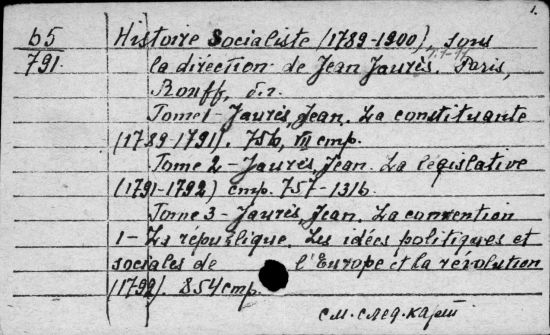 1.
б5
791.
Histoire Socialiste (1789-1900), sous
la direction de Jean Jaurès. Paris,
Rouff, б.г.
Tome 1 - Jaurès, Jean. La constituante
(1789-1791). 756, VII стр.
Tome 2 - Jaurès, Jean. La législative
(1791-1792) стр. 757-1316.
Tome 3 - Jaurès, Jean. La convention
1 - La république. Les idées politiques et
sociales de l'Europe et la révolution
(1792). 854 стр.
см. след. карт